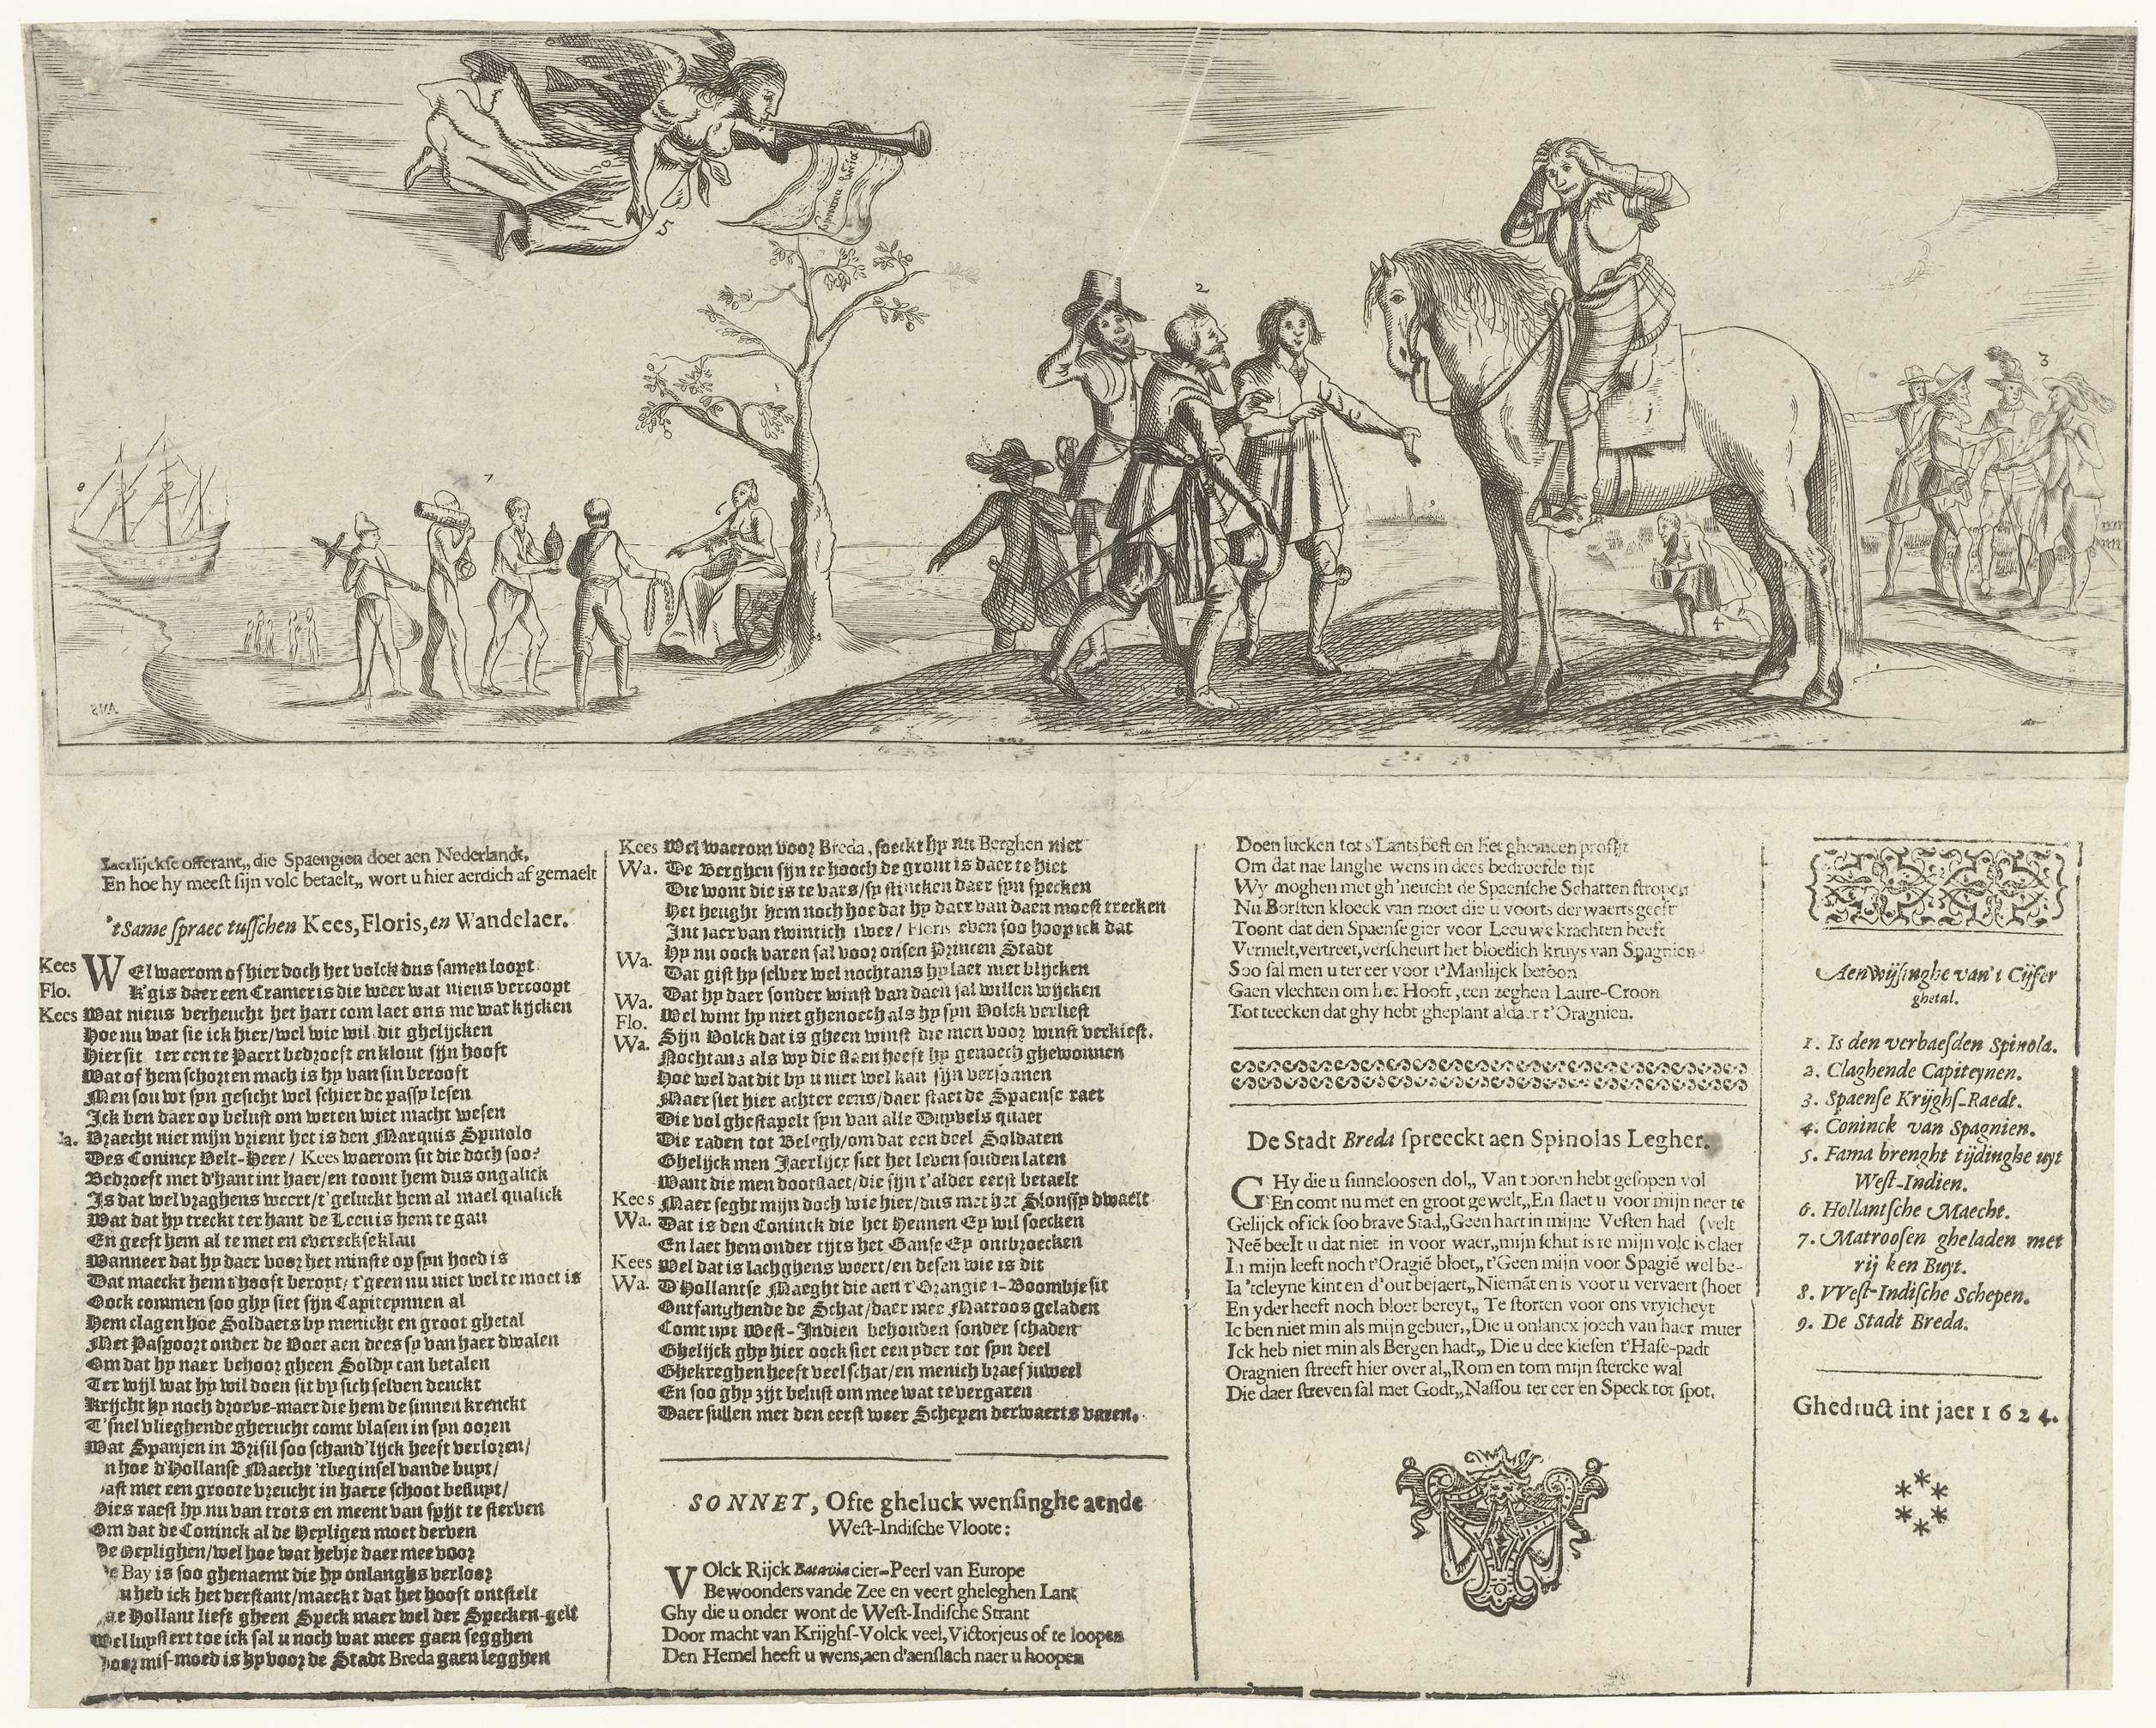 Jaerlijckse offerant,, die Spaengien doet aen Nederlandt,
En hoe hy meest sijn volc betaelt,, wort u hier aerdich af gemaelt
'tSame spraec tusschen Kees, Floris, en Wandelaer.
Kees WEl waerom of hier doch het volck dus samen loopt
Flo. K'gis daer een Cramer is die weer wat nieus vercoopt
Kees Wat nieus verheucht het hart com laet ons me wat kijcken
Hoe nu wat sie ick hier/wel wie wil dit ghelijcken
Hier sit ter een te Paert bedroeft en klout sijn hooft
Wat of hem schort en mach is hy van sin berooft
Men sou wt syn gesicht wel schier de passy lesen
Ick ben daer op belust om weten wiet macht wesen
Wa. Vraecht niet mijn vrient het is den Marquis Spinolo
Des Conincx Velt-Heer/ Kees waerom sit die doch soo?
Bedroeft met d'hant int haer/en toont hem dus ongalick
Is dat wel vraghens weert/t'geluckt hem al mael qualick
Wat dat hy treckt ter hant de Leeu is hem te gau
En geeft hem al te met en evereckseklau
Wanneer dat hy daer voor het minste op syn hoed is
Dat maeckt hem t'hooft beroyt/ t'geen nu niet wel te moet is
Oock commen soo ghy siet sijn Capiteynnen al
Hem clagen hoe Soldaets by menicht en groot ghetal
Met Paspoort onder de Voet aen dees sy van haer dwalen
Om dat hy naer behoor gheen Soldy can betalen
Ter wijl wat hy wil doen sit by sich selven denckt
Krijcht hy noch droeve-maer die hem de sinnen krenckt
T'snel vlieghende gherucht comt blasen in syn ooren
Wat Spanjen in Brisil soo schand'lijck heeft verloren/
n hoe d'Hollanse Maecht 'tbeginsel vande buyt/
ast met een groote vreucht in haere schoot besluyt/
Dies raest hy nu van trots en meent van spyt te sterven
Om dat de Coninck al de Heyligen moet derven
De Heylighen/wel hoe wat hebje daer mee voor
De Bay is soo ghenaemt die hy onlanghs verloor
u heb ick het verstant/maeckt dat het hooft ontstelt
ae Hollant lieft gheen Speck maer wel der Specken-gelt
Wel luystert toe ick sal u noch wat meer gaen segghen
Door mis-moed is hy voor de Stadt Breda gaen legghen
Kees Wel waerom voor Breda, soeckt hy nu Berghen niet
Wa. De Berghen sijn te hooch de gront is daer te hiet
Die wont die is te vars/sy stincken daer syn specken
Het heught hem noch hoe dat hy daer van daen moest trecken
Int jaer van twintich twee/ Floris even soo hoop ick dat
Hy nu oock varen sal voor onsen Princen Stadt
Wa. Dat gist hy selver wel nochtans hy laet niet blijcken
Dat hy daer sonder winst van daen sal willen wijcken
Wa. Wel wint hy niet ghenoech als hy syn Volck verliest
Flo. Sijn Volck dat is gheen winst die men voor winst verkiest.
Wa. Nochtans als wy die slaen heeft hy genoech ghewonnen
Hoe wel dat dit by u niet wel kan sijn versonnen
Maer siet hier achter eens/daer staet de Spaense raet
Die vol ghestapelt syn van alle Duyvels quaet
Die raden tot Belegh/om dat een deel Soldaten
Ghelijck men Jaerlijcx siet het leven souden laten
Want die men dootslaet/die sijn t'alder eerst betaelt
Kees Maer seght mijn doch wie hier/dus met het Slonssy dwaelt
Wa. Dat is den Coninck die het Hennen Ey wil soecken
En laet hem onder tijts het Ganse Ey ontbroecken
Kees Wel dat is lachghens weert/en desen wie is dit
Wa. D'Hollantse Maeght die aen t'Orangie t-Boombje sit
Ontfanghende de Schat/daer mee Matroos geladen
Comt uyt West-Indien behouden sonder schaden
Ghelijck ghy hier oock siet een yder tot syn deel
Ghekreghen heeft veel schat/en menich braef juweel
En soo ghy zijt belust om mee wat te vergaren
Daer sullen met den eerst weer Schepen derwaerts varen.
SONNET, Ofte gheluck wensinghe aende
West-Indische Vloote:
VOlck Rijck Batavia cier-Peerl van Europe
Bewoonders vande Zee en veert gheleghen Lant
Ghy die u onder wont de West-Indische Strant
Door macht van Krijghs-Volck veel, Victorjeus of te loopen
Den Hemel heeft u wens,aen d'aenslach naer u hoopen
Doen lucken tot s'Lants best en het ghemeen profijt
Om dat nae langhe wens in dees bedroefde tijt
Wy moghen met gh'neucht de Spaensche Schatten stropen
Nu Borsten kloeck van moet die u voorts derwaerts geeft
Toont dat den Spaense gier voor Leeuwe krachten beeft
Vermelt,vertreet,verscheurt het bloedich kruys van Spagnien
Soo sal men u ter eer voor t'Manlijck betoon
Gaen vlechten om het Hooft,een zeghen Laure-Croon
Tot teecken dat ghy hebt gheplant aldaer t'Oragnien.
De Stadt Breda spreeckt aen Spinolas Legher.
GHy die u sinneloosen dol,, Van tooren hebt gesopen vol
En comt nu met en groot gewelt,,En slaet u voor mijn neer te
Gelijck of ick soo brave Stad,,Geen hart in mijne Vesten had (velt
Neē beelt u dat niet in voor waer,,mijn schut is re mijn volc is claer
In mijn leeft noch t'Oragiē bloet,,t'Geen mijn voor Spagiē wel be-
Ia 'tcleyne kint en d'out bejaert,,Niemāt en is voor u vervaert (hoet
En yder heeft noch bloet bereyt,, Te storten voor ons vryicheyt
Ic ben niet min als mijn gebuer,,Die u onlancx joech van haer muer
Ick heb niet min als Bergen hadt,, Die u dee kiesen t'Hase-padt
Oragnien streeft hier over al,,Rom en tom mijn stercke wal
Die daer streven sal met Godt,,Nassou ter eer en Speck tot spot.
Aenwijsinghe van't Cijfer
ghetal.
1. Is den verbaesden Spinola.
2. Claghende Capiteynen.
3. Spaense Krijghs-Raedt.
4. Coninck van Spagnien.
5. Fama brenght tijdinghe uyt
West-Indien.
6. Hollantsche Maecht.
7. Matroosen gheladen met
rijken Buyt.
8. West-Indische Schepen.
9. De Stadt Breda.
Ghedruct int jaer 1624.